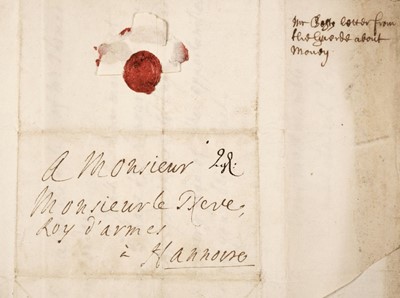 Mr letter from
the about
Money
A Monsieur
Monsieur le Neve,
Roy d'armes
à Hannovre